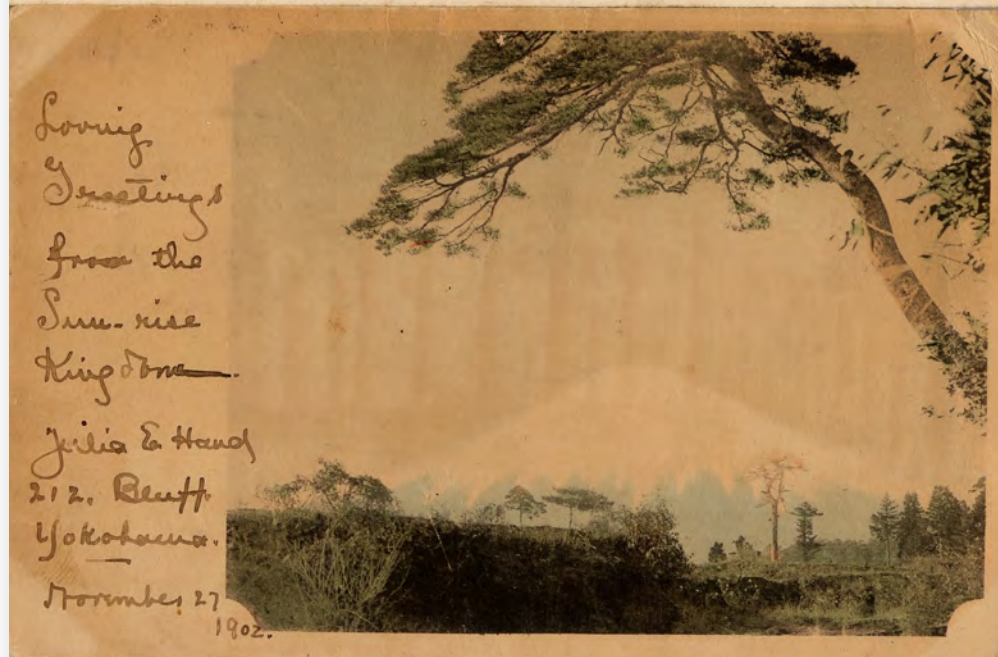 Loving
Greetings
from the
Sun-rise
Kingdom.
Julia E. Hand
212. Bluff.
Yokohama.
November 27
1902.